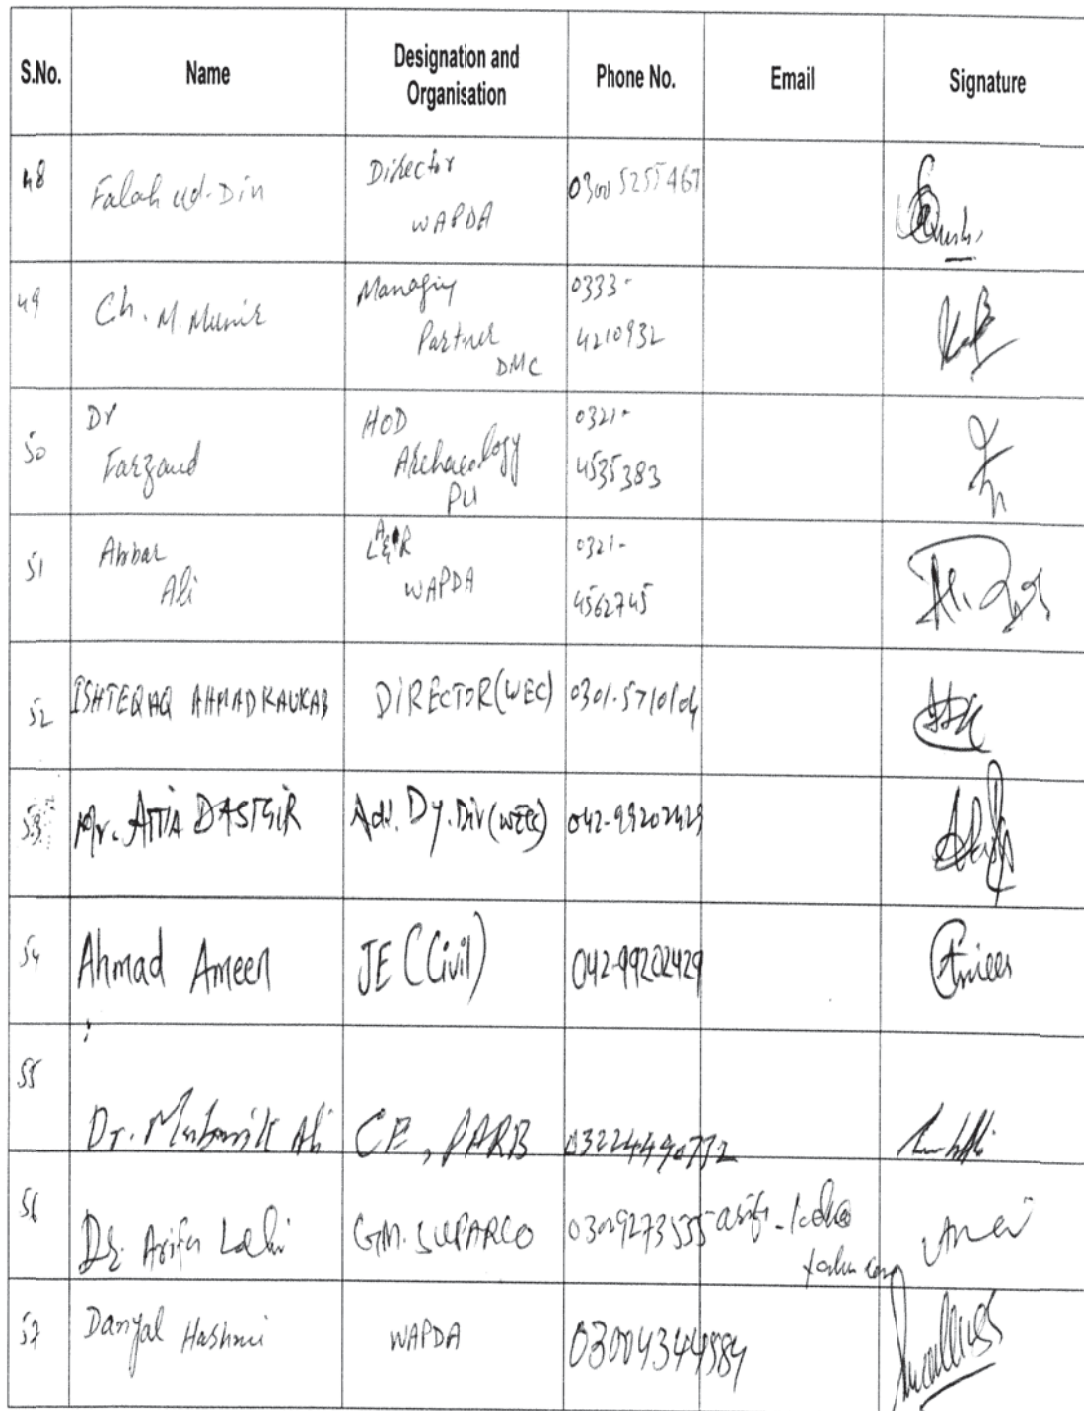 S.No. Name Designation and Organisation Phone No. Email Signature
48 Falah ud-Din Director WAPDA 0300 5255467
49 Ch. M. Munir Managing Partner DMC 0333- 4210932
50 Dr Farzand HOD Archaeology PU 0321- 4535383
51 Ali WAPDA 0321- 4562745
52 ISHTEQAQ AHMAD KAUKAB DIRECTOR(WEC) 0301-5710104
53 ATTIA DASTGIR Dy. Dir 042-99202429
54 Ahmad Ameen JE (Civil) 042-99202429 Ameen
55 Dr. Ali CE, PARB
56 Dr. GM. SUPARCO
57 Danyal Hashmi WAPDA 03004344584